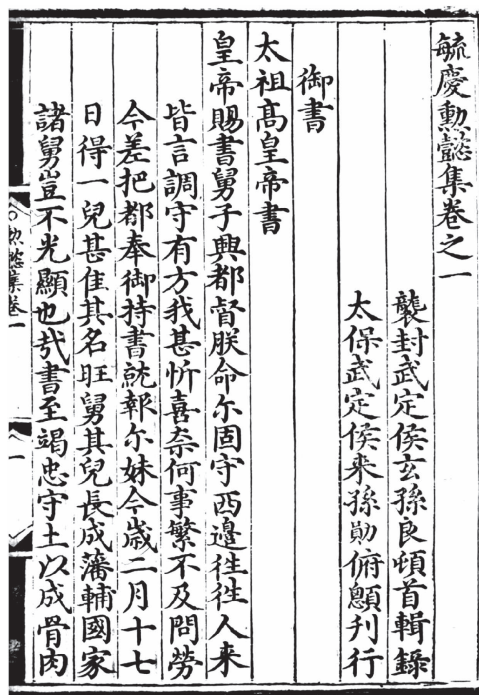 毓慶勲懿集卷之一
襲封武定侯玄孫良頓首輯錄
太保武定侯来孫勛俯顖刊行
御書
太祖髙皇帝書
皇帝賜書舅子興都督朕命尔固守西邉徃徃人来
皆言調守有方我甚忻喜柰何事繁不及問勞
今差把都奉御持書就報尔妹今歳二月十七
日得一兒甚佳其名旺舅其兒長成藩輔國家
諸舅豈不光顯也㢤書至竭忠守土以成骨肉
勲懿集卷一
一